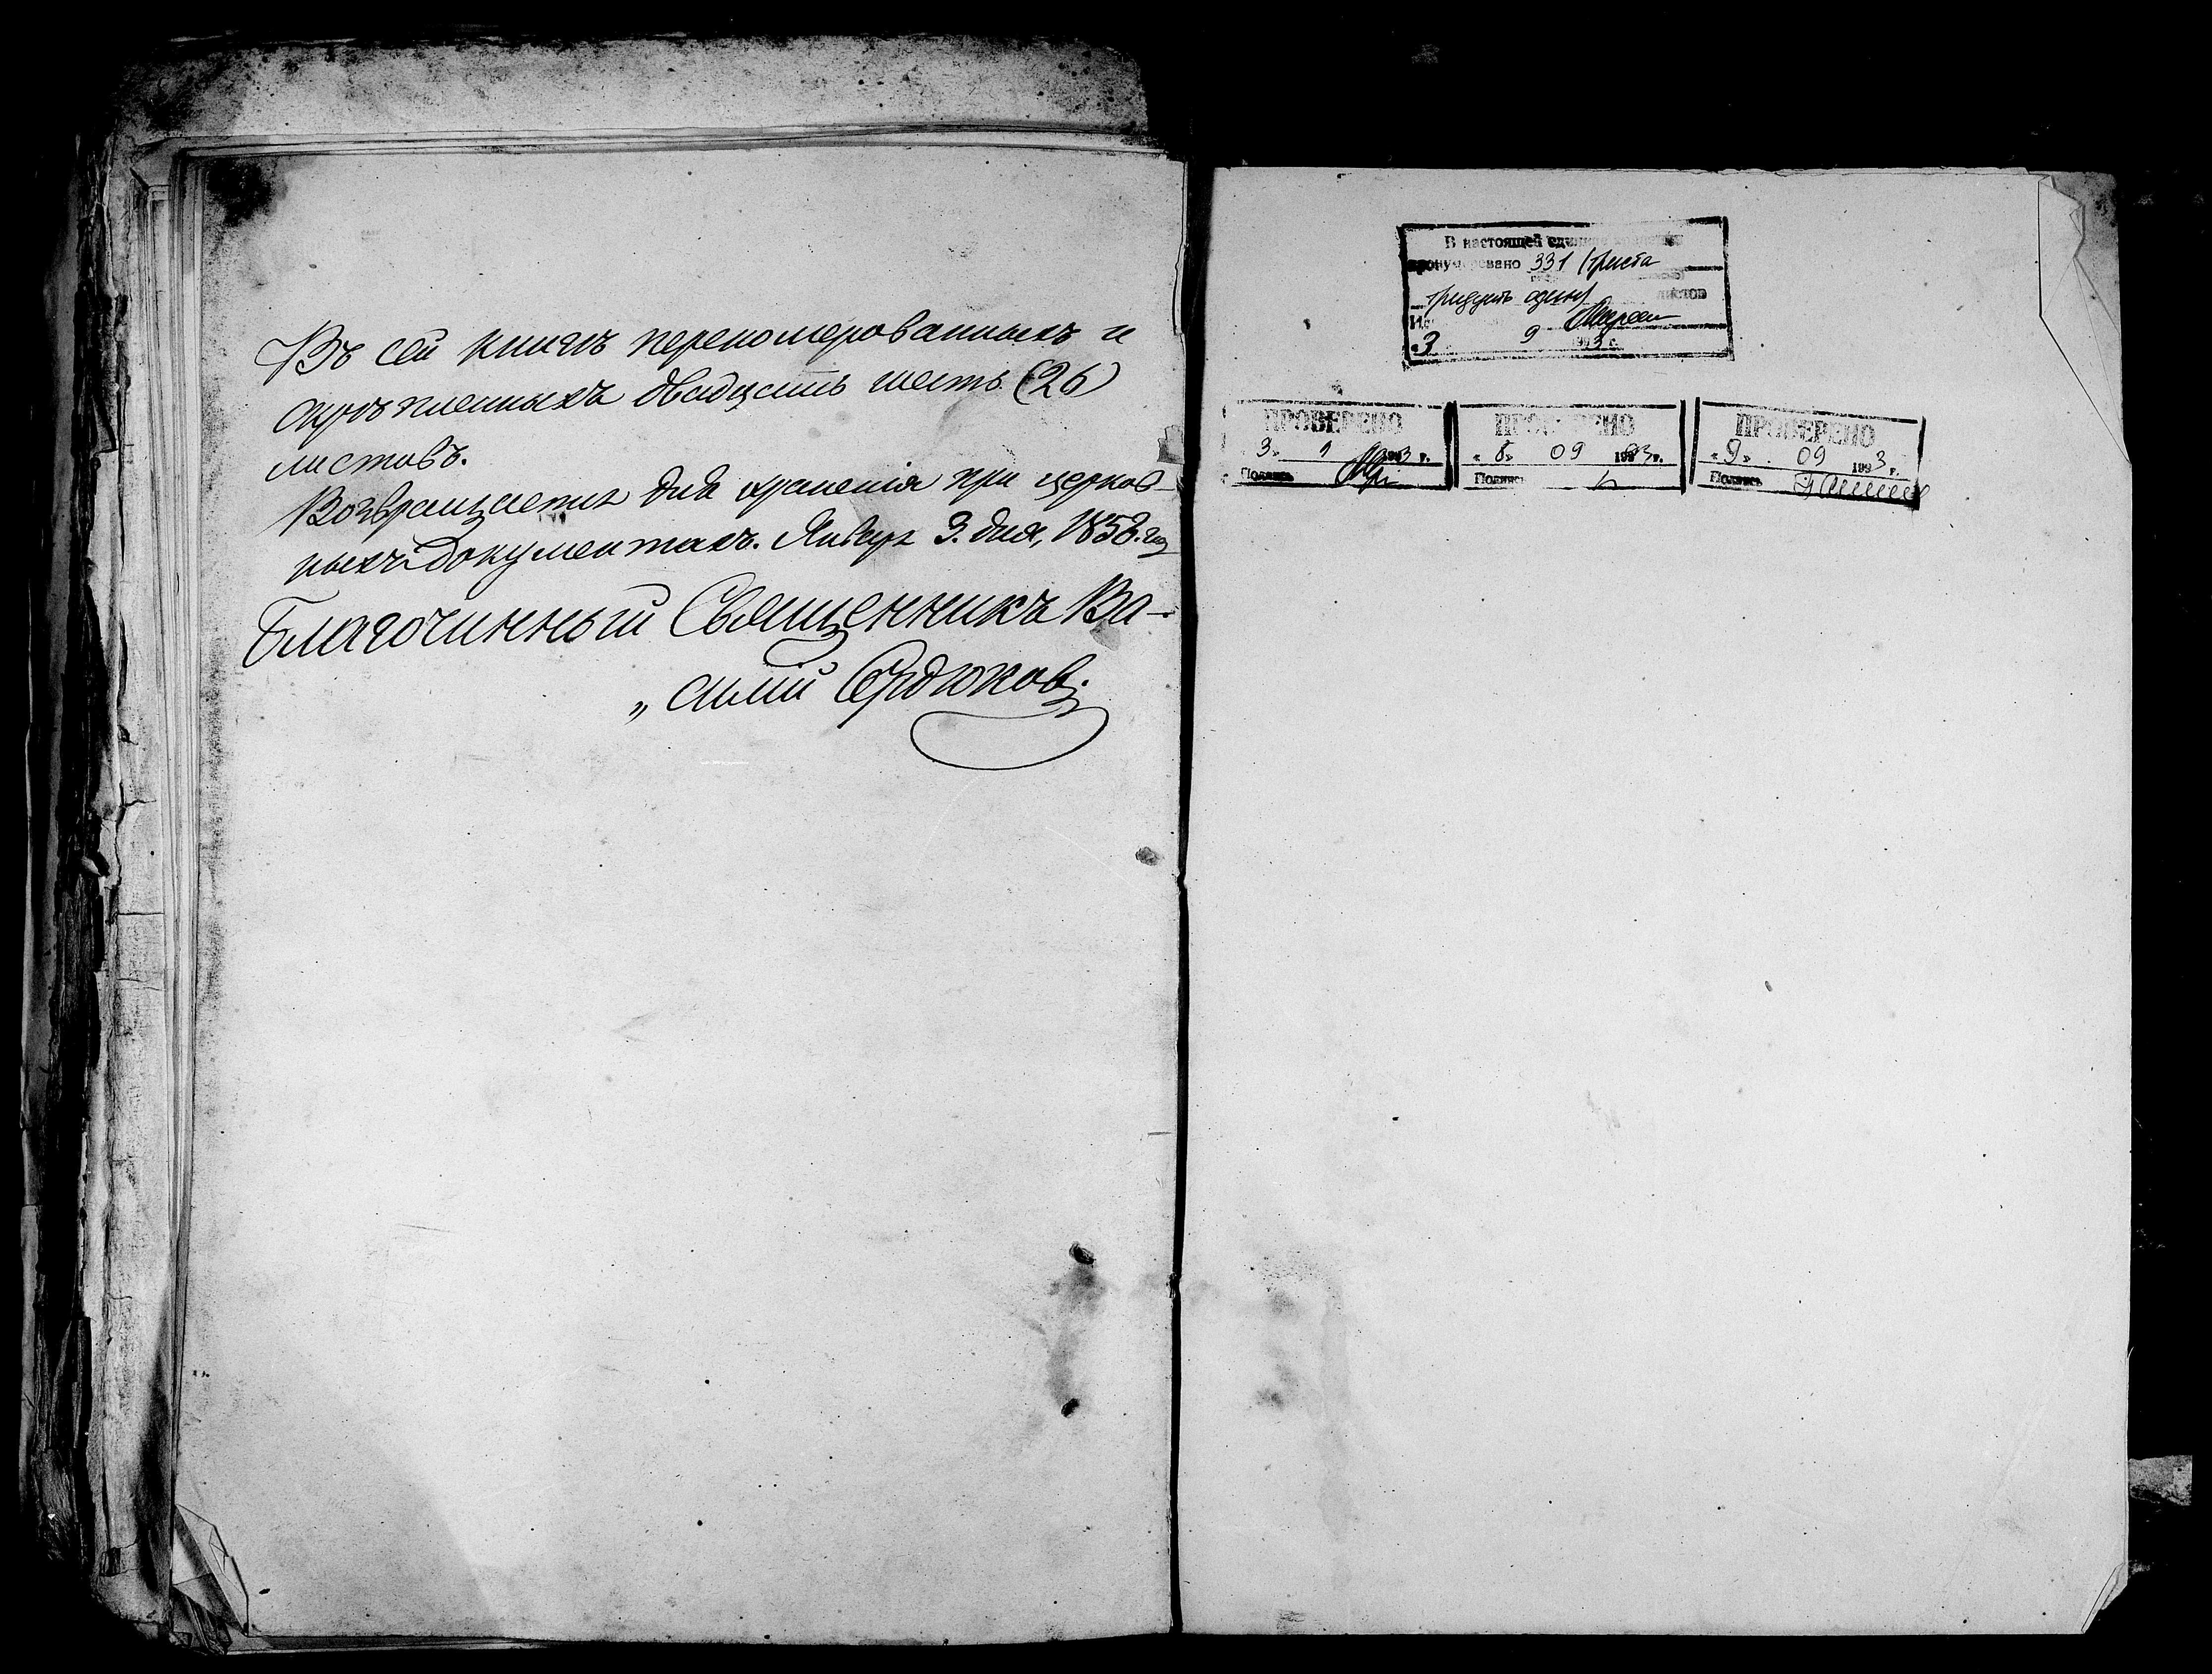 Въ сей книгѣ переномерованныхъ и
скрѣпленныхъ двадцать шесть (26)
листовъ.
Возвращается для храненія при церков-
ныхъ документахъ. Января 3. дня, 1858. го
Благочинный Священникъ Ва-
„ силій Сердюковъ.
В настоящей единице
пронумеровано 331 (триста
тридцать один) листов
3 9 1993 г.
ПРОВЕРЕНО
3» 1993 г.
Подпись
ПРОВЕРЕНО
«8» 09 1993 г.
Подпись
ПРОВЕРЕНО
«9» 09 1993 г.
Подпись